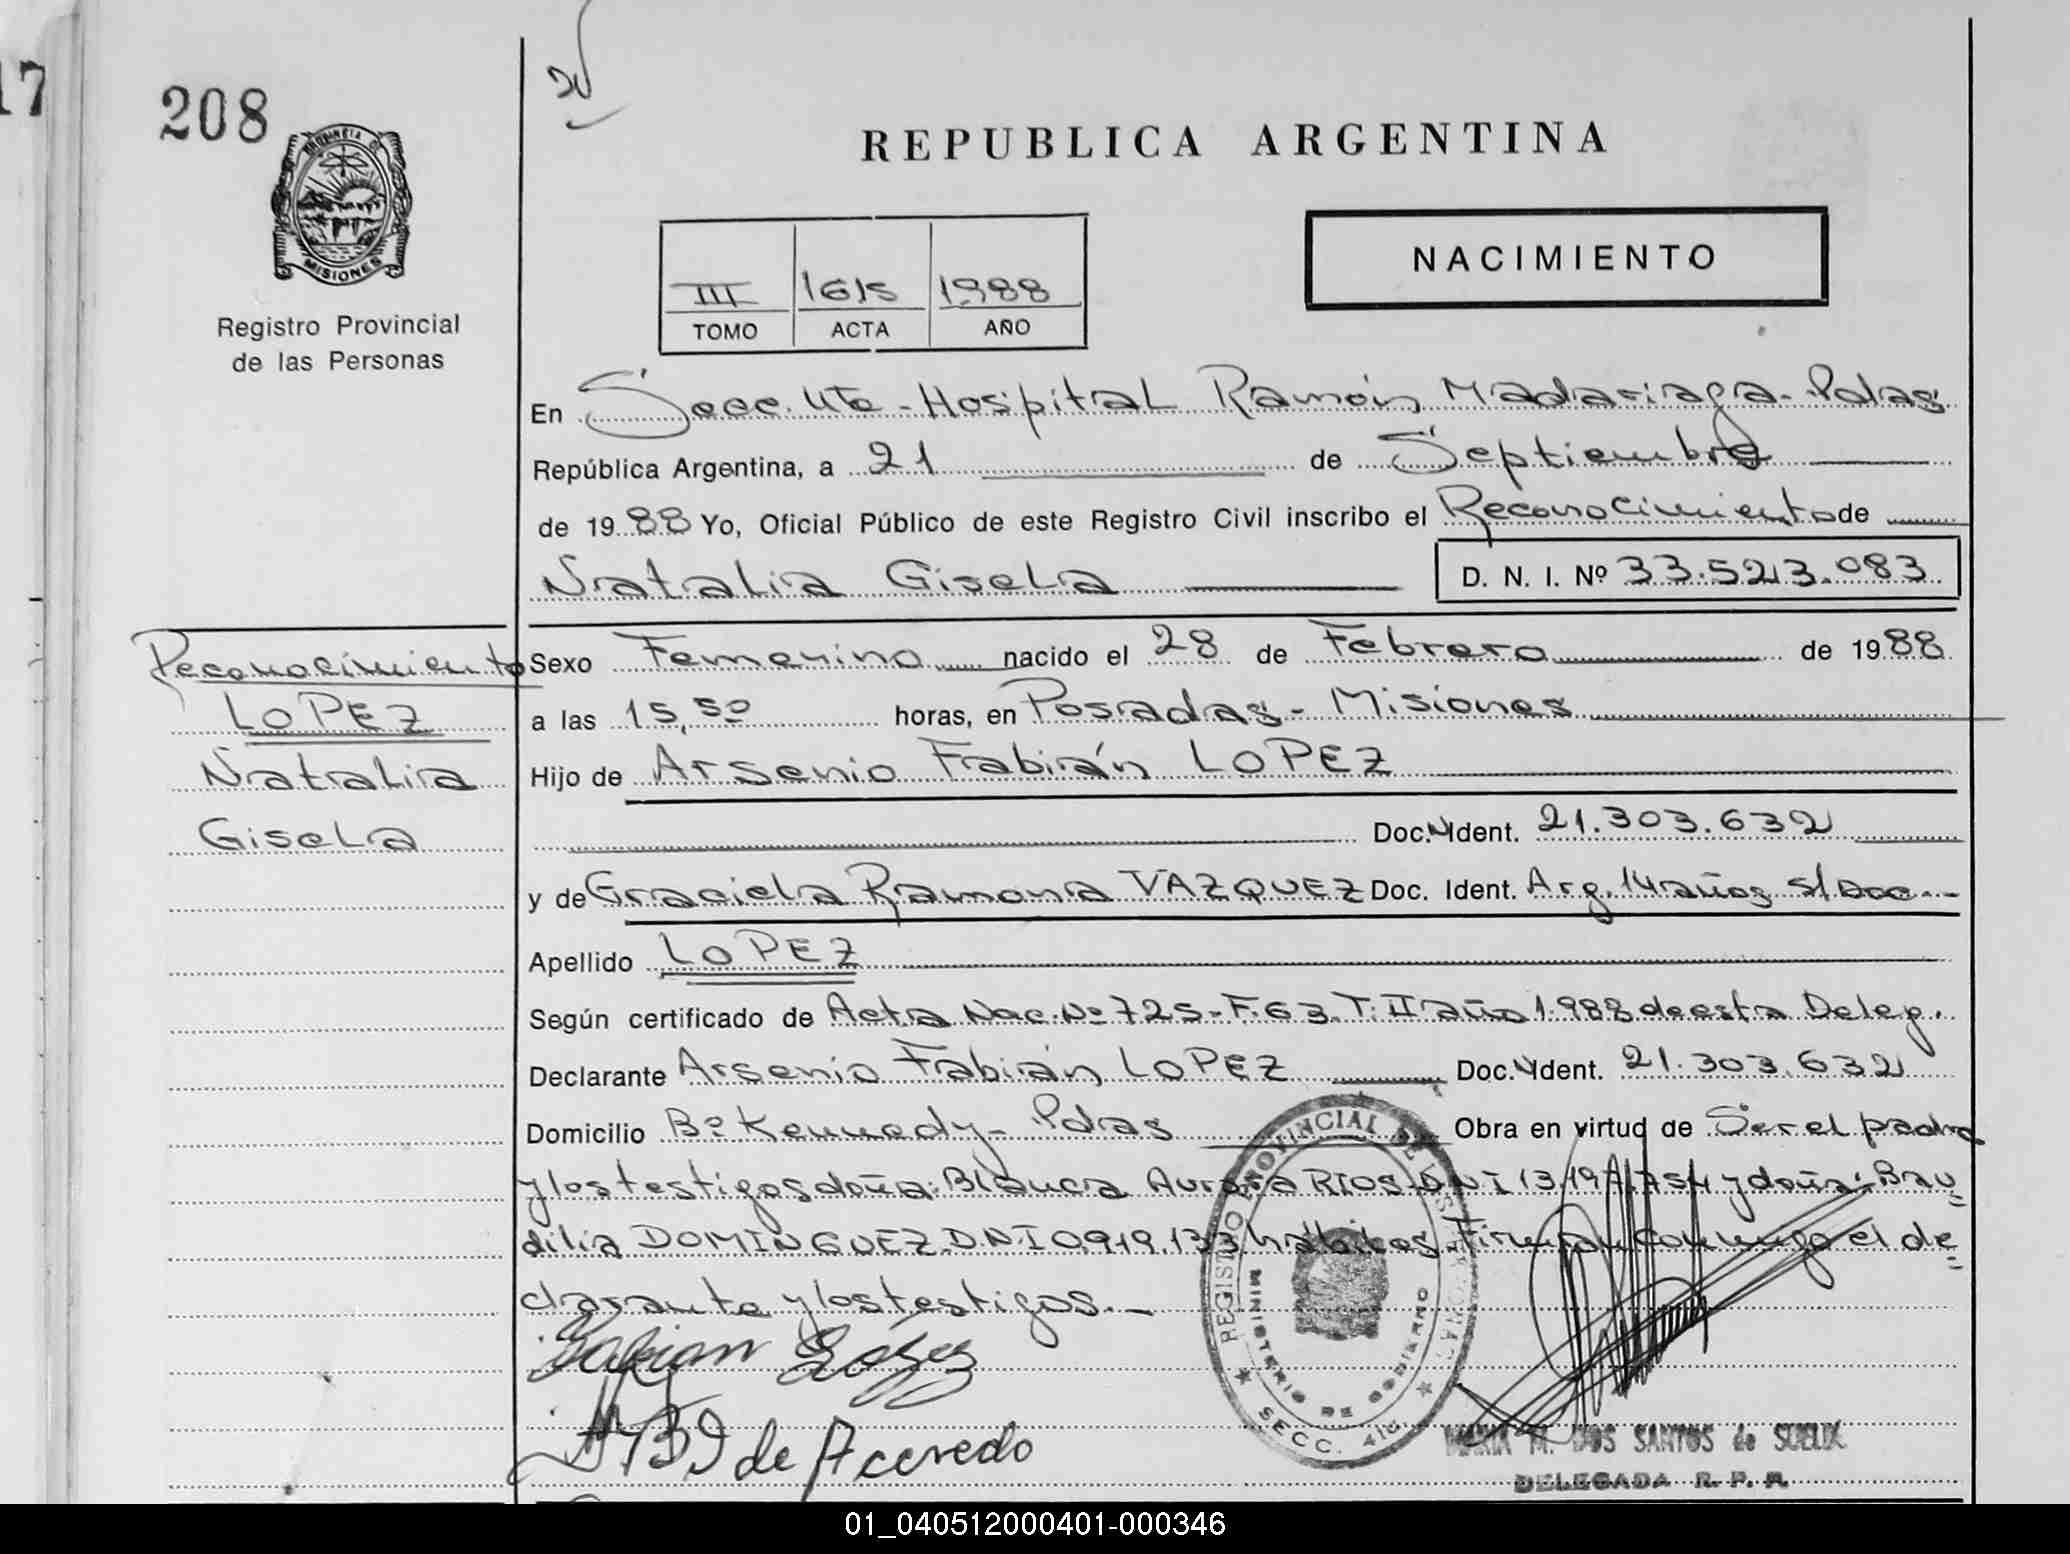 17
208
PROVINCIA DE
MISIONES
Registro Provincial
de las Personas
REPUBLICA ARGENTINA
NACIMIENTO
III 1615 1988
TOMO ACTA AÑO
En Secc. 4ta - Hospital Ramón Madariaga - Pdas
República Argentina, a 21 de Septiembre
de 1988 Yo, Oficial Público de este Registro Civil inscribo el Reconocimiento de
Natalia Gisela D. N. I. Nº 33.523.083
Reconocimiento
LOPEZ
Natalia
Gisela
Sexo Femenino nacido el 28 de Febrero de 1988
a las 15,50 horas, en Posadas - Misiones
Hijo de Arsenio Fabián LOPEZ
Doc. N Ident. 21.303.632
y de Graciela Ramona VAZQUEZ Doc. Ident. Arg. 14 años s/Doc.-
Apellido LOPEZ
Según certificado de Acta Nac. Nº 725 - F. 63. T. II año 1.988 de esta Deleg.
Declarante Arsenio Fabián LOPEZ Doc. N Ident. 21.303.632
Domicilio Bº Kennedy - Pdas Obra en virtud de Ser el padre
y los testigos doña: Blanca Aurora RIOS DNI 13.197.754 y doña: Bau=
dilia DOMINGUEZ D.N.I 0.919.133 hábiles. Firman conmigo el de=
clarante y los testigos.-
Fabian López
de Acevedo
REGISTRO PROVINCIAL DE LAS PERSONAS
MINISTERIO DE GOBIERNO
SECC. 4ta
MARIA M. DOS SANTOS de
DELEGADA R. P. P.
01_040512000401-000346